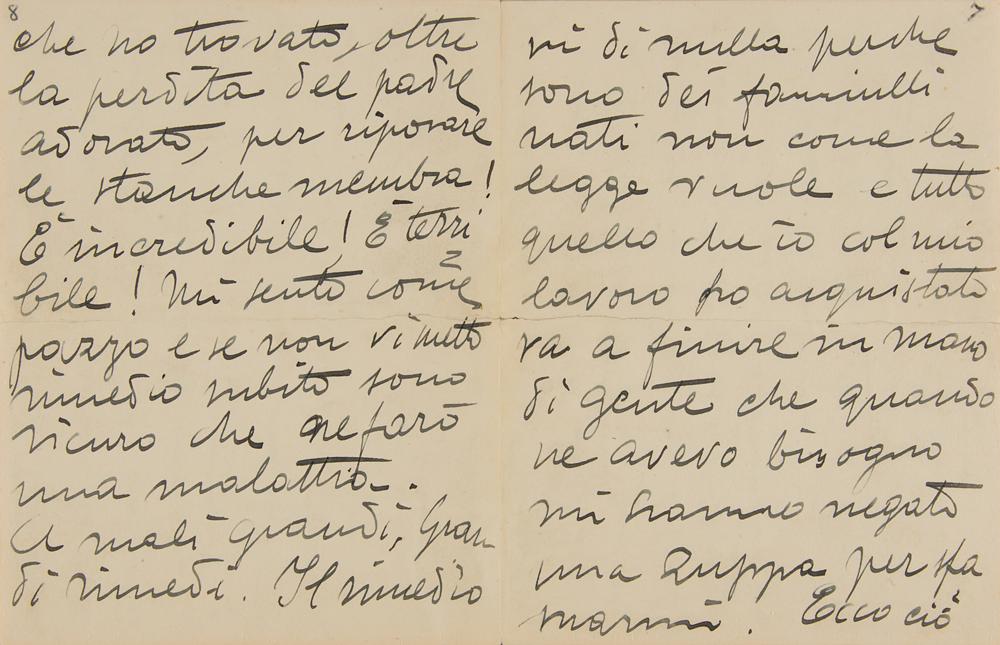 7
vi di nulla perche
sono dei fanciulli
nati non come la
legge vuole e tutto
quello che io col mio
lavoro ho acquistato
va a finire in mano
di gente che quando
ne avevo bisogno
mi hanno negato
una zuppa per sfa
marmi. Ecco ciò
8
che ho trovato, oltre
la perdita del padre
adorato, per riposare
le stanche membra!
È incredibile! È terri
bile! Mi sento come
pazzo e se non vi metto
rimedio subito sono
sicuro che ne farò
una malattia.
A mali grandi, gran
di rimedi. Il rimedio